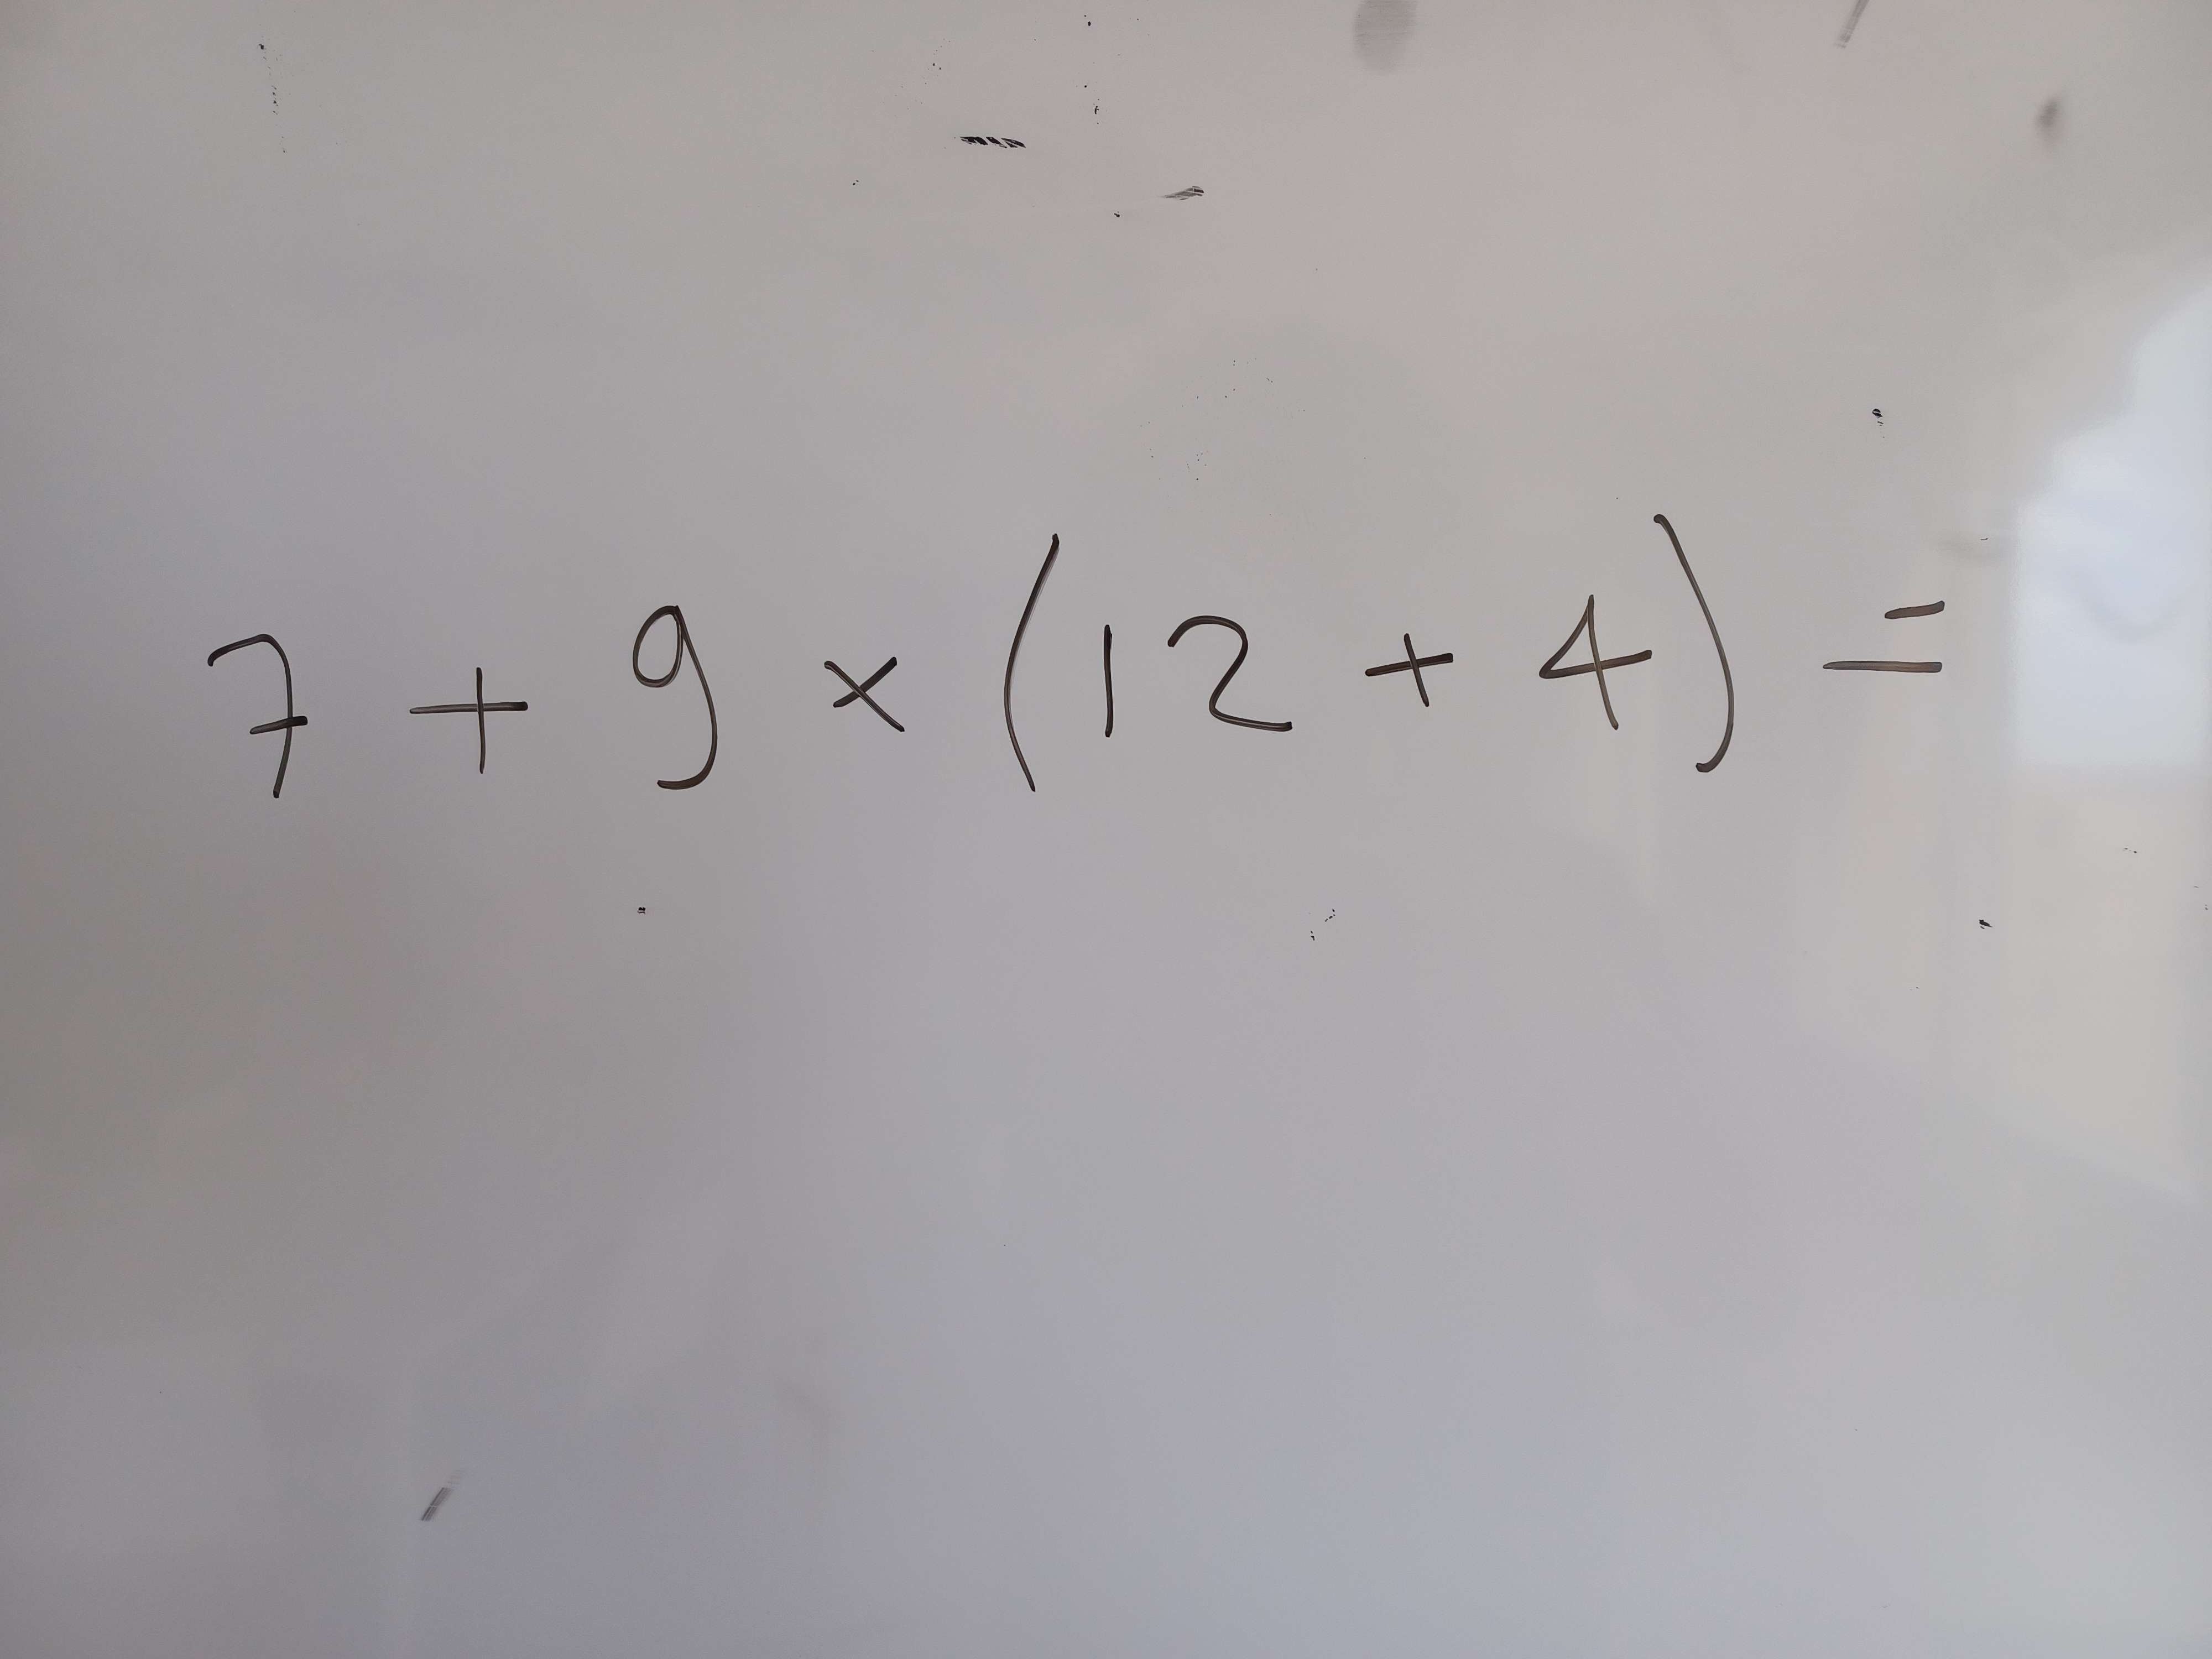 7 + 9 × (12 + 4) =